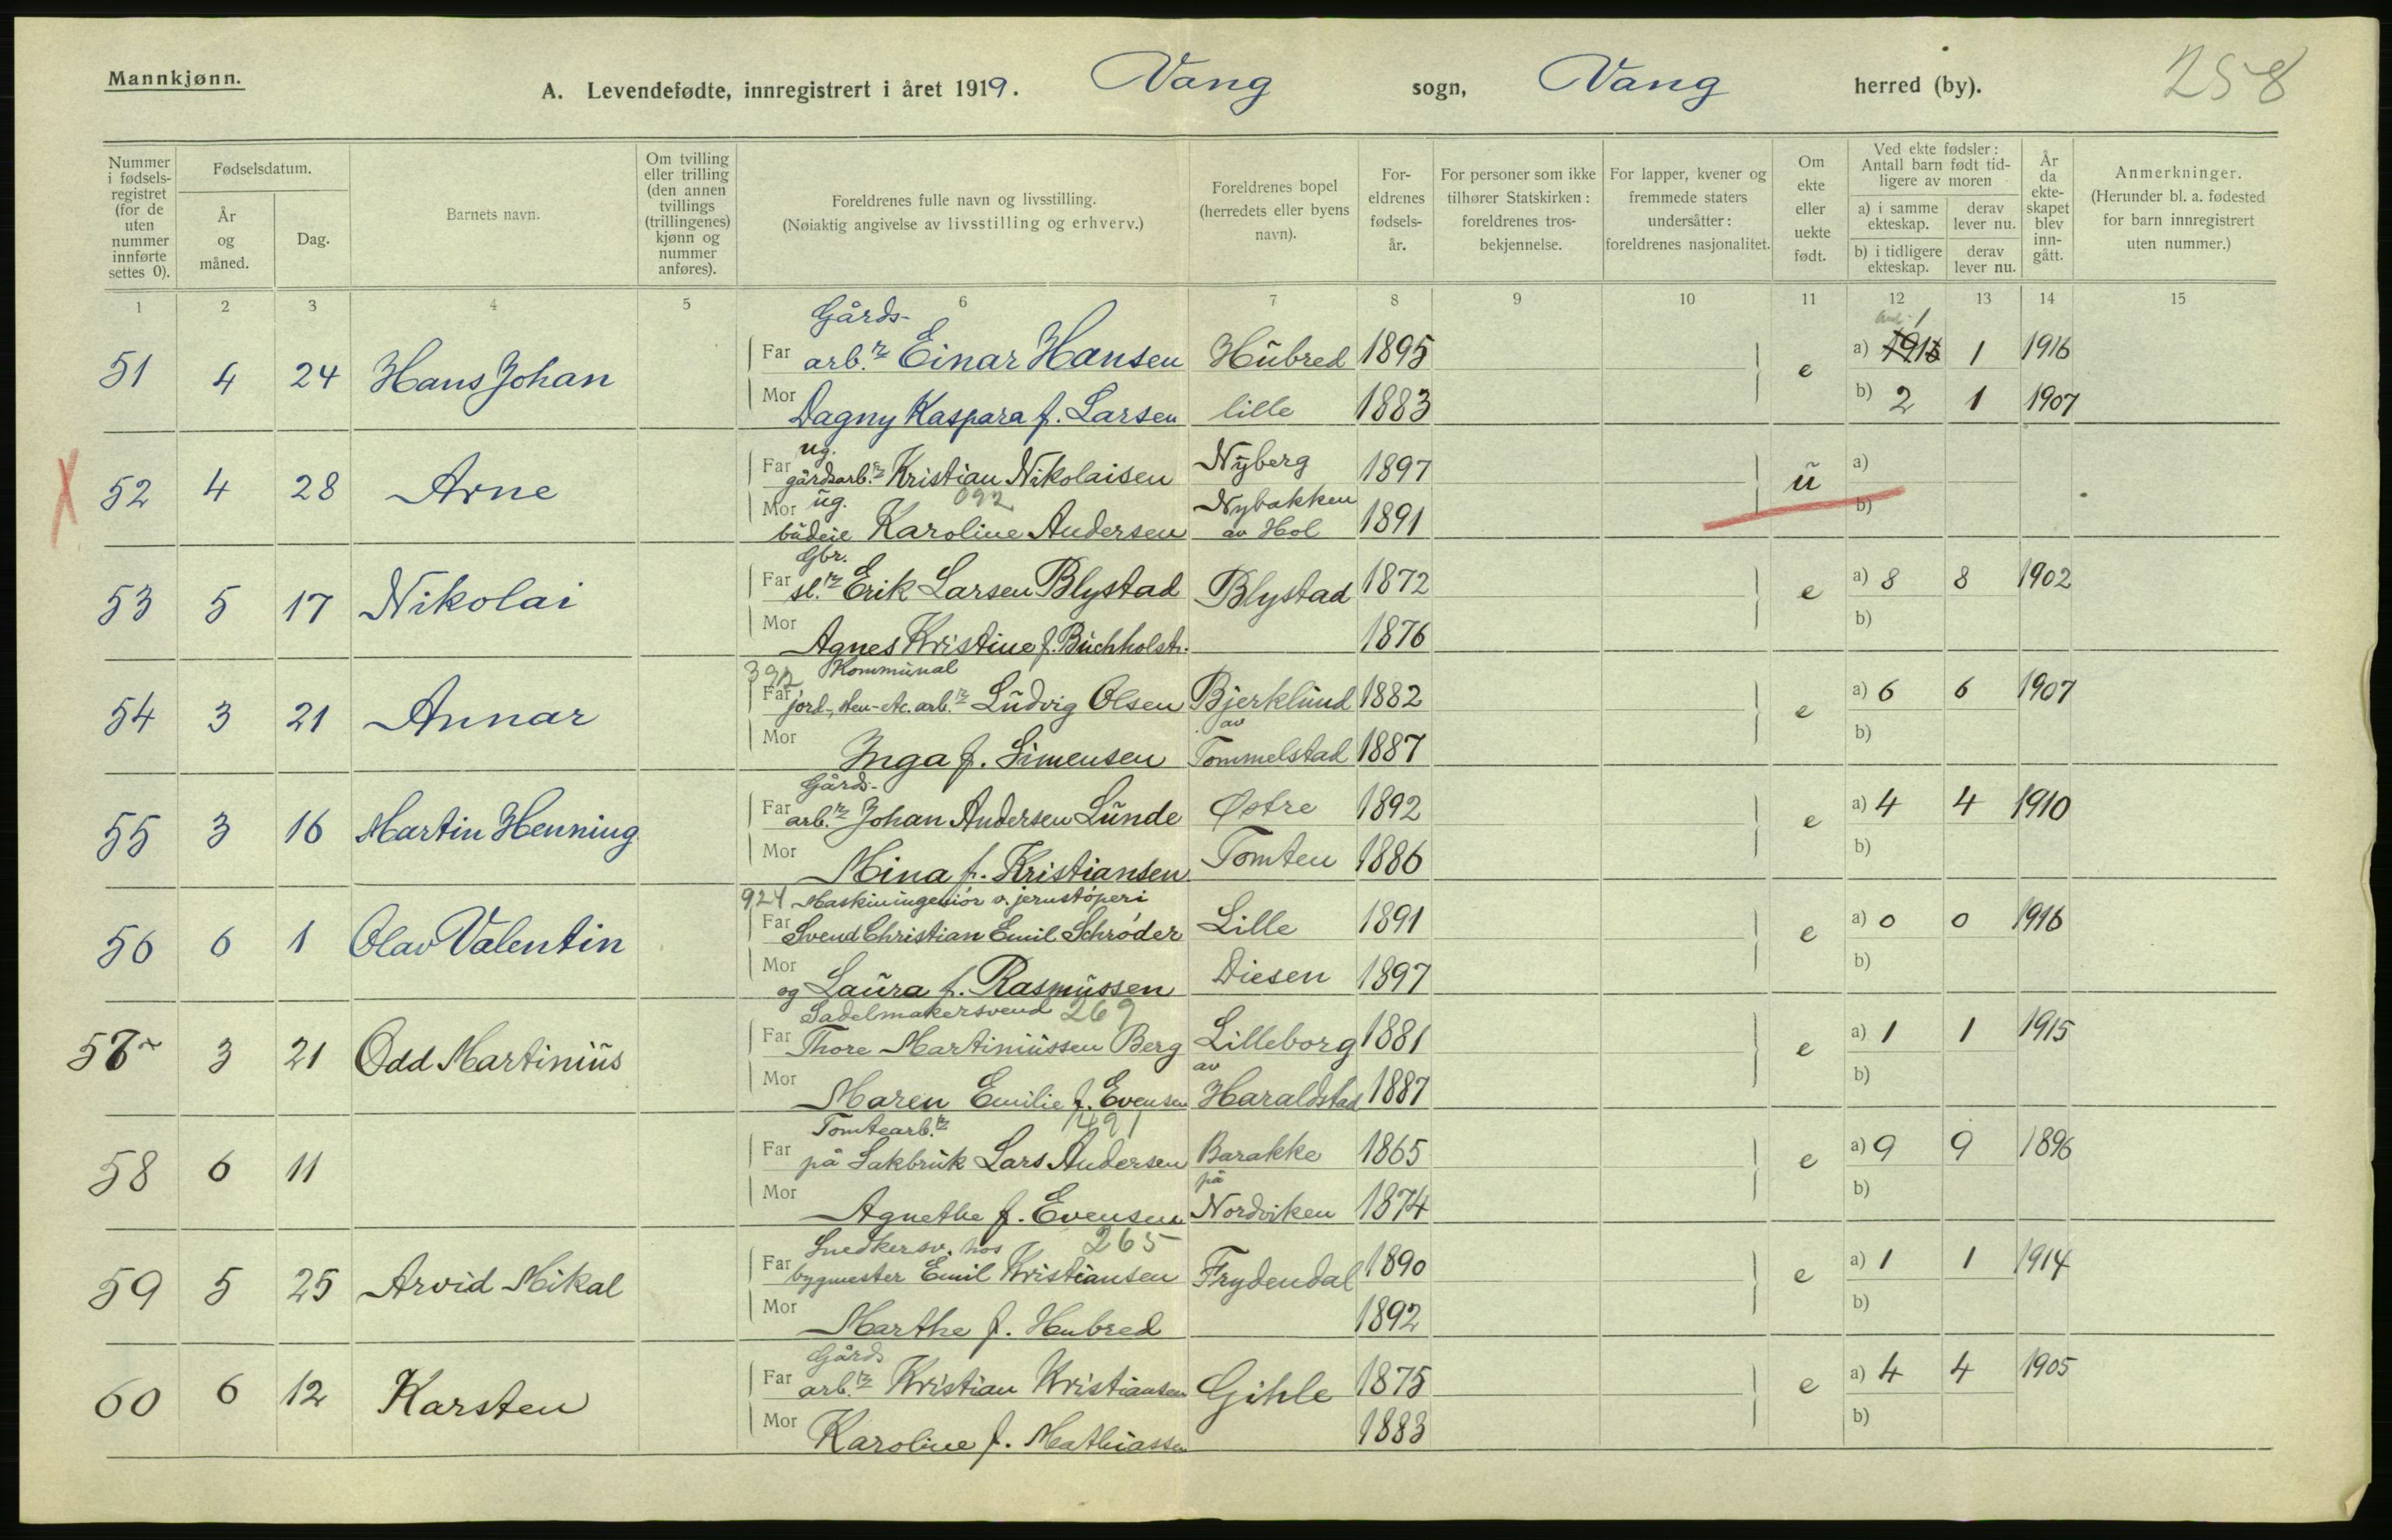 Mannkjønn.
A. Levendefødte, innregistrert i året 1919. Vang sogn, Vang herred (by). 258
Nummer i fødselsregistret (for de uten nummer innførte settes 0).
Fødselsdatum.
År og måned.
Dag.
Barnets navn.
Om tvilling eller trilling (den annen tvillings (trillingenes) kjønn og nummer anføres).
Foreldrenes fulle navn og livsstilling.
(Nøiaktig angivelse av livsstilling og erhverv.)
Foreldrenes bopel (herredets eller byens navn).
Foreldrenes fødselsår.
For personer som ikke tilhører Statskirken: foreldrenes trosbekjennelse.
For lapper, kvener og fremmede staters undersåtter: foreldrenes nasjonalitet.
Om ekte eller uekte født.
Ved ekte fødsler: Antall barn født tidligere av moren
a) i samme ekteskap.
derav lever nu.
b) i tidligere ekteskap.
derav lever nu.
År da ekteskapet blev inngått.
Anmerkninger.
(Herunder bl. a. fødested for barn innregistrert uten nummer.)
1 2 3 4 5 6 7 8 9 10 11 12 13 14 15
Gårds- 1
51 4 24 Hans Johan Far arb.r Einar Hansen Hubred 1895 e a) 1916 1 1916
Mor Dagny Kaspara f. Larsen lille 1883 b) 2 1 1907
ug.
X 52 4 28 Arne Far gårdsarb.r Kristian Nikolaisen Nyberg 1897 u a)
ug. 092 Nybakken
Mor budeie Karoline Andersen av Hol 1891 b)
Gbr.
53 5 17 Nikolai Far sl.r Erik Larsen Blystad Blystad 1872 e a) 8 8 1902
Mor Agnes Kristine f. Buchholst. 1876 b)
392 Kommunal
54 3 21 Annar Far jord-, sten- etc. arb.r Ludvig Olsen Bjerklund 1882 e a) 6 6 1907
av
Mor Inga f. Simensen Tommelstad 1887 b)
Gårds-
55 3 16 Martin Henning Far arb.r Johan Andersen Lunde Østre 1892 e a) 4 4 1910
Mor Mina f. Kristiansen Tomten 1886 b)
924 Maskiningeniør v. jernstøperi
56 6 1 Olav Valentin Far Svend Christian Emil Schrøder Lille 1891 e a) 0 0 1916
Mor og Laura f. Rasmussen Diesen 1897 b)
Sadelmakersvend 269
57 3 21 Odd Martinius Far Thore Martiniussen Berg Lilleborg 1881 e a) 1 1 1915
av
Mor Maren Emilie f. Evensen Haraldstad 1887 b)
Tomtearb.r 1491
58 6 11 Far på Sakbruk Lars Andersen Barakke 1865 e a) 9 9 1896
på
Mor Agnethe f. Evensen Nordviken 1874 b)
Snedkersv. hos 265
59 5 25 Arvid Mikal Far bygmester Emil Kristiansen Frydendal 1890 e a) 1 1 1914
Mor Marthe f. Hubred 1892 b)
Gårds
60 6 12 Karsten Far arb.r Kristian Kristiansen Gihle 1875 e a) 4 4 1905
Mor Karoline f. Mathiassen 1883 b)